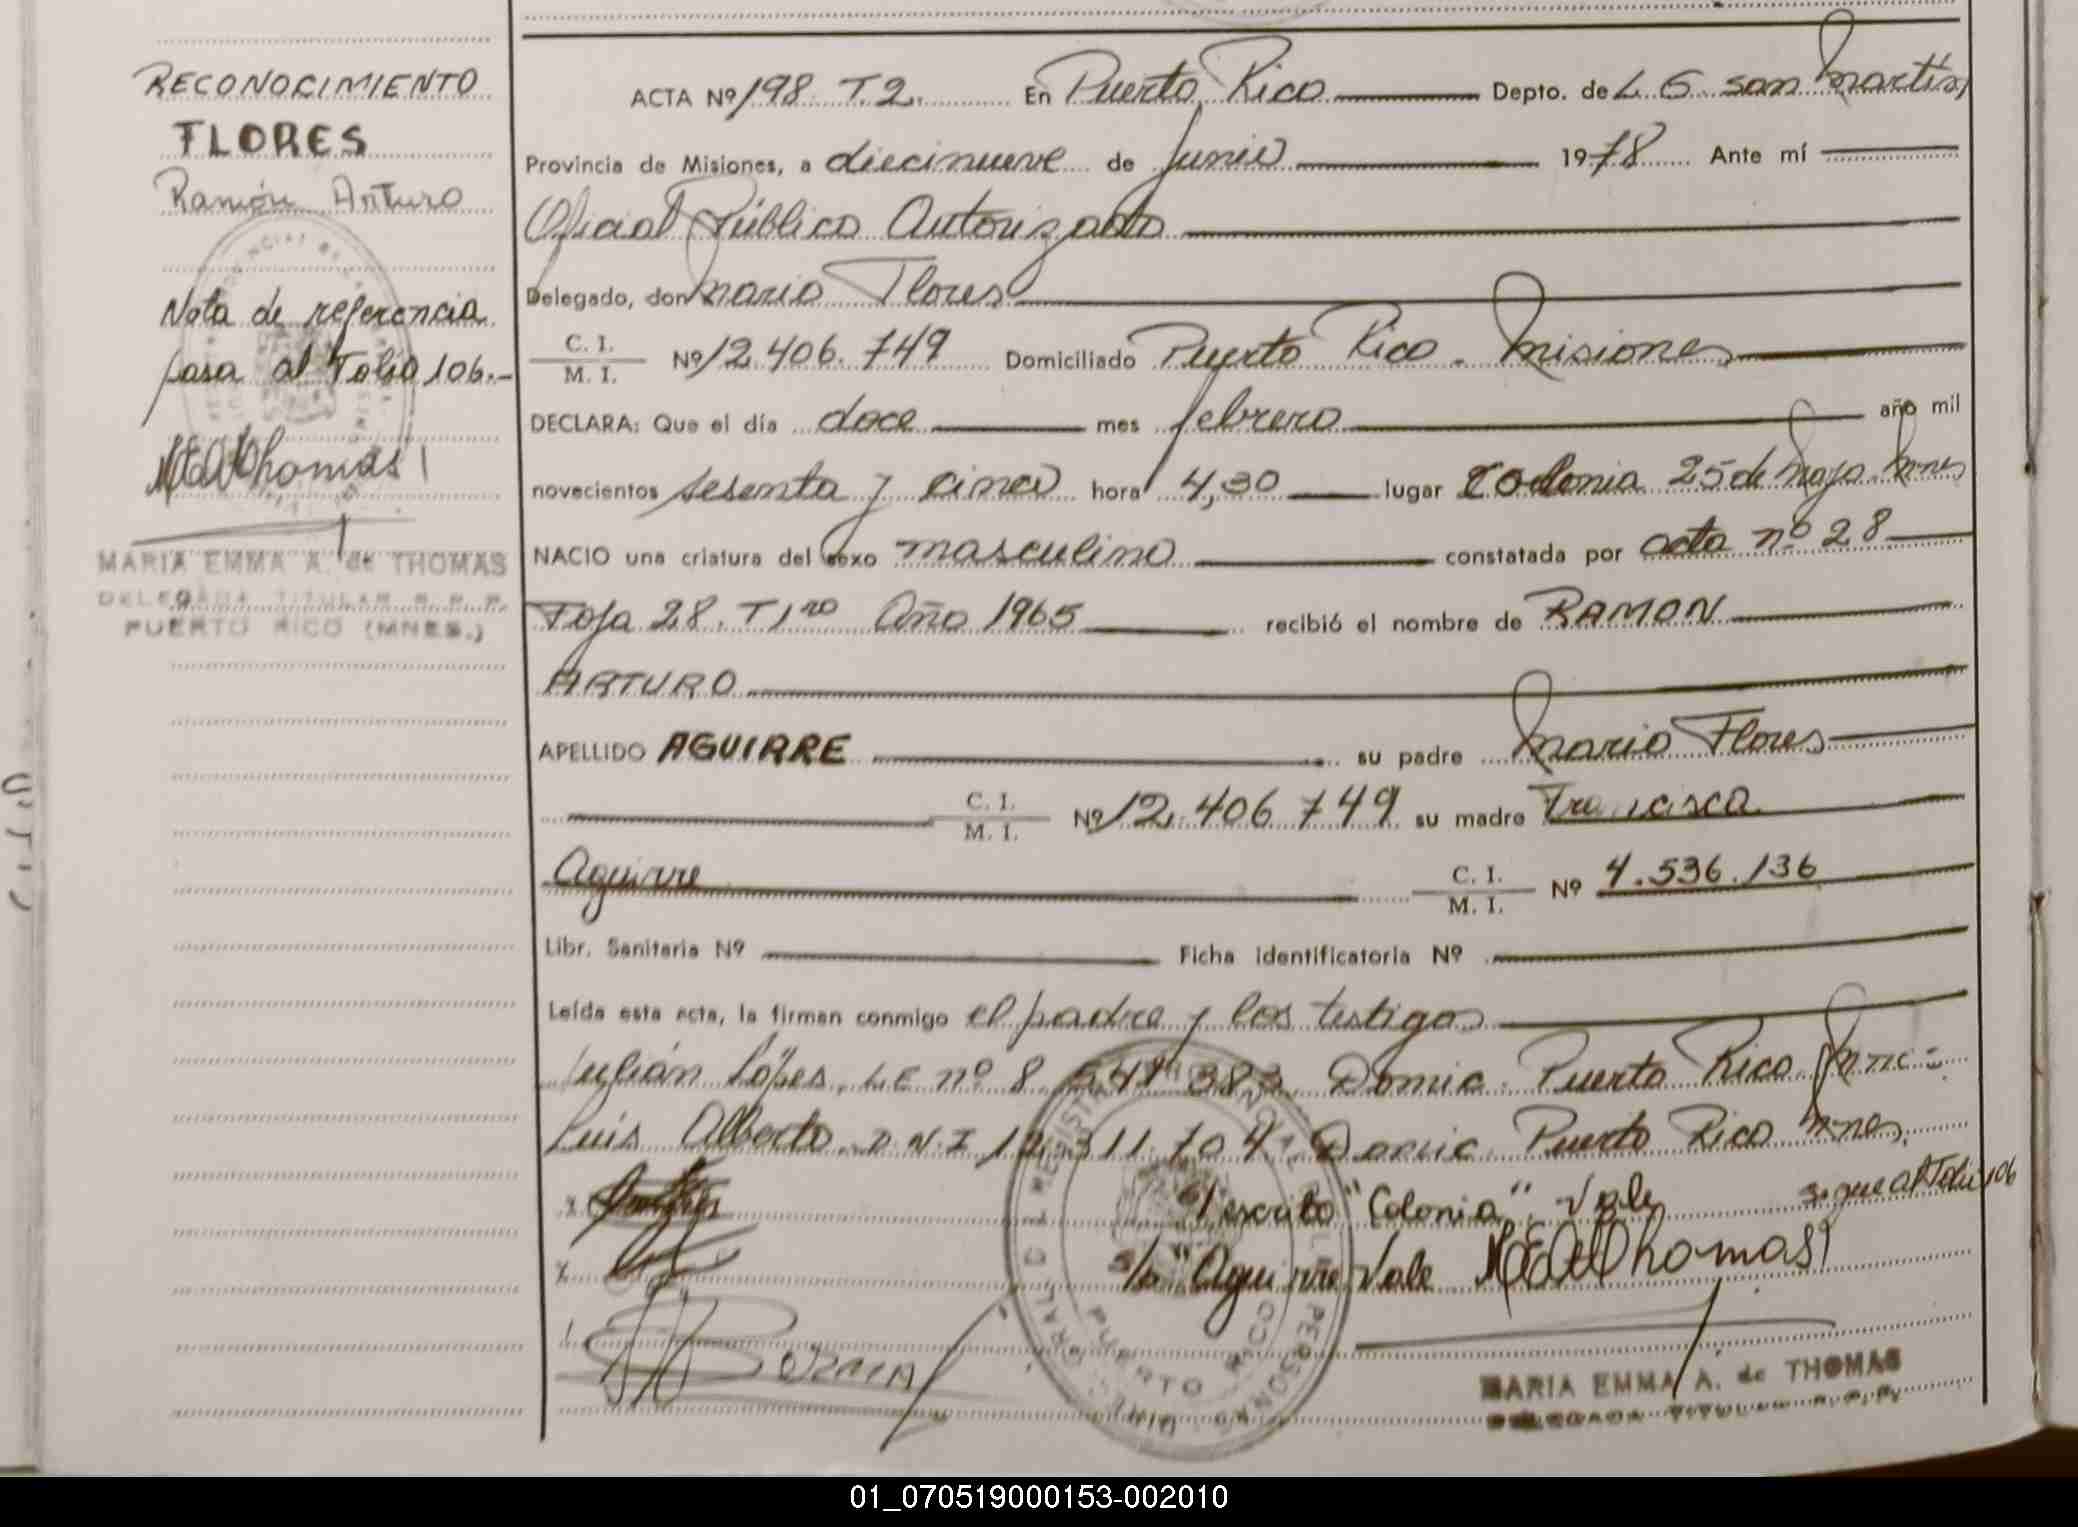 RECONOCIMIENTO
FLORES
Ramón Arturo
Nota de referencia
pasa al Folio 106.-
MEAThomas
MARIA EMMA A. de THOMAS
DELEGADA TITULAR R.P.P.
PUERTO RICO (MNES.)
ACTA Nº 198 T.2. En Puerto Rico Depto. de L G san Martín
Provincia de Misiones, a diecinueve de junio 1978 Ante mí
Oficial Público Autorizado
Delegado, don Mario Flores
C. I.
M. I. Nº 12.406.749 Domiciliado Puerto Rico. Misiones
DECLARA: Que el día doce mes febrero año mil
novecientos sesenta y cinco hora 4,30 lugar Colonia 25 de Mayo. Mnes
NACIO una criatura del sexo masculino constatada por acta nº 28
Foja 28. T 1ro Año 1965 recibió el nombre de RAMON
ARTURO
APELLIDO AGUIRRE su padre Mario Flores
C. I.
M. I. Nº 12.406 749 su madre Francisca
Aguirre C. I.
M. I. Nº 4.536.136
Libr. Sanitaria Nº Ficha identificatoria Nº
Leída esta acta, la firman conmigo el padre y los testigos
Julián Lópes, L E nº 8 Domic. Puerto Rico
Luis Alberto D.N.I Domic. Puerto Rico Mnes.
s/ escrito "Colonia". Vale sigue al Folio 106
s/b "Aguirre Vale MEAThomas
PUERTO RICO
MARIA EMMA A. de THOMAS
DELEGADA TITULAR R.P.P.
01_070519000153-002010